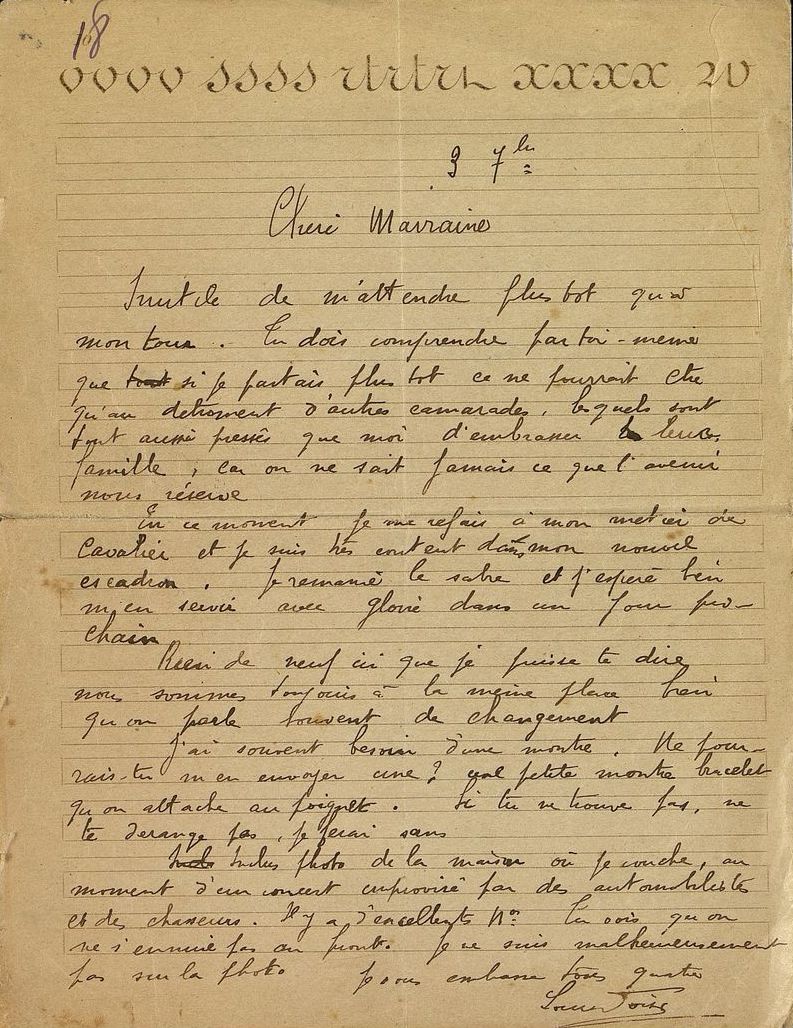 18
vvvv ssss rtrtrt xxxx w
3 7bre
Cheri Marraine
Inutile de m'attendre plus tot qu'a
mon tour. Tu dois comprendre par toi-meme
que tout si je partais plus tot ce ne pourrait etre
qu'au detriment d'autres camarades, lesquels sont
tout aussi pressés que moi d'embrasser leur
famille, car on ne sait jamais ce que l'avenir
nous réserve
En ce moment je me refais à mon metier de
Cavalier et je suis très content dans mon nouvel
escadron. Je remanie le sabre et j'espere bien
m'en servir avec gloire dans un jour pro-
chain
Rien de neuf ici que je puisse te dire
nous sommes toujours à la meme place bien
qu'on parle souvent de changement
J'ai souvent besoin d'une montre. Ne pour-
rais-tu m'en envoyer une? une petite montre bracelet
qu'on attache au poignet. Si tu ne trouve pas, ne
te derange pas, je ferai sans
Inclus photo de la maison où je couche, au
moment d'un concert improvisé par des automobilistes
et des chasseurs. Il y a d'excellents Nos. Tu vois qu'on
ne s'ennuie pas au front. Je ne suis malheureusement
pas sur la photo je vous embrasse tous quatre